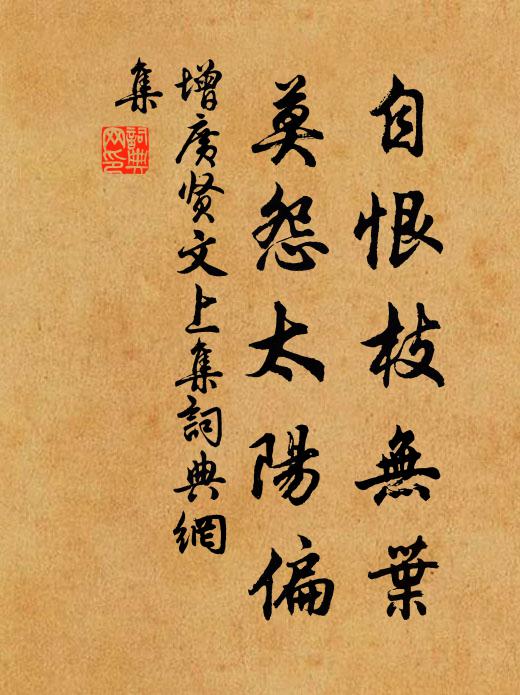 自恨枝無葉
莫怨太陽偏
增廣贤文上集詞典網
集
詞典
网印